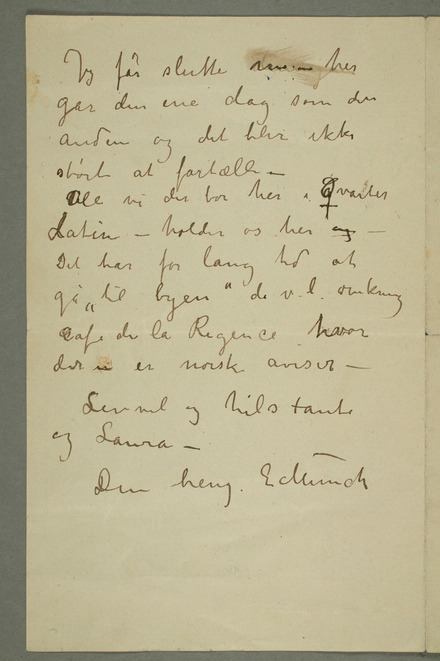 Jeg får slutte her
gar den ene dag som den
anden og det blir ikke
stort at fortælle –
Alle vi der bor her i Qvartier
Latin – holder os her og –
Det har for lang tid at
gå „til byen" d.v.l. omkring
cafe de la Regence hvor
der er norsk aviser –
Levvel og hils tante
og Laura –
Din heng. EdMunch